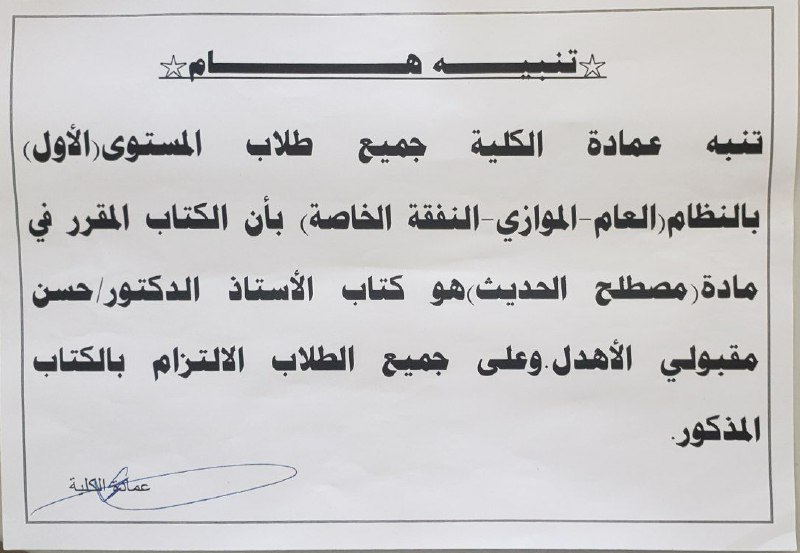 ☆تنبيـــــه هـــــــــــــام☆
تنبه عمادة الكلية جميع طلاب المستوى(الأول)
بالنظام(العام-الموازي-النفقة الخاصة) بأن الكتاب المقرر في
مادة(مصطلح الحديث)هو كتاب الأستاذ الدكتور/حسن
مقبولي الأهدل.وعلى جميع الطلاب الالتزام بالكتاب
المذكور.
عمادة الكلية